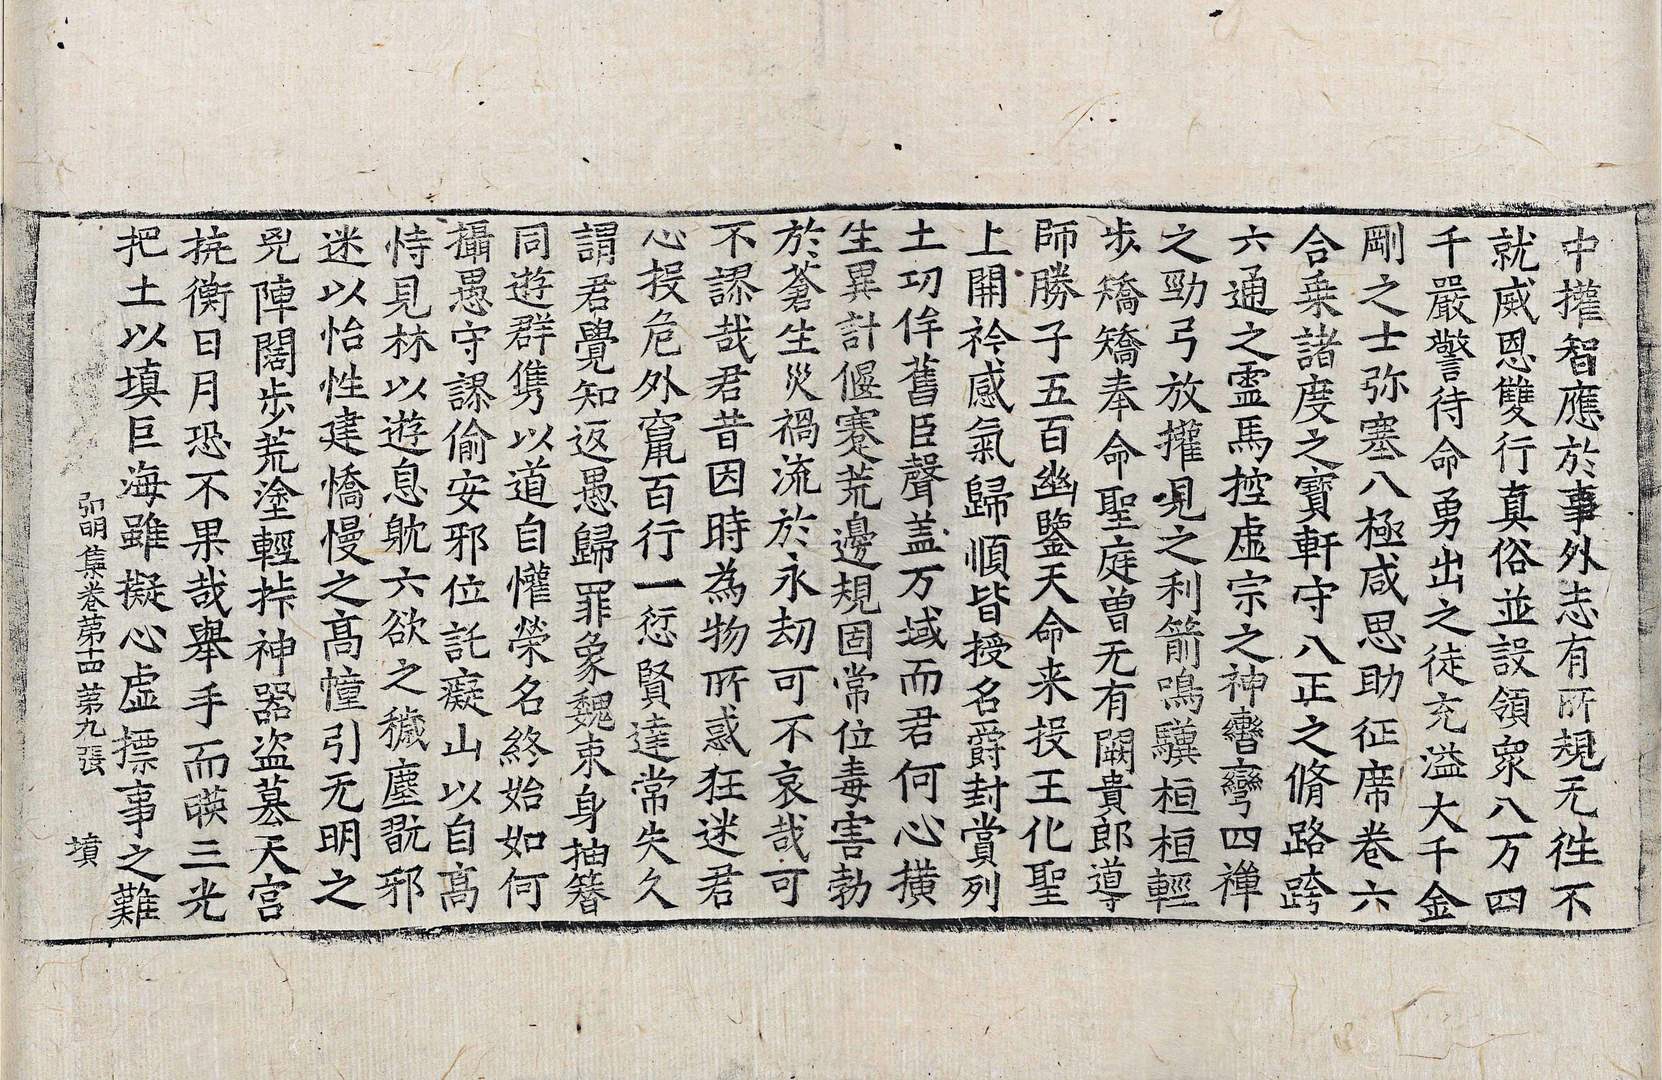 中權智應於事外志有所規无徃不
就威恩雙行真俗並設領衆八万四
千嚴警待命勇出之徒充溢大千金
剛之士弥塞八極咸思助征席卷六
合乗諸度之寳軒守八正之脩路跨
六通之靈馬控虛宗之神轡彎四禪
之勁弓放權見之利箭鳴驥桓桓輕
步矯矯奉命聖庭曽无有闕貴郎導
師勝子五百幽鑒天命来投王化聖
上開衿感氣歸順皆授名爵封賞列
土功侔舊臣聲盖万域而君何心横
生異計偃蹇荒邊規固常位毒害勃
於蒼生災禍流於永劫可不哀哉可
不謬哉君昔因時為物所惑狂迷君
心投危外竄百行一愆賢達常失久
謂君覺知返愚歸罪象魏束身抽簪
同遊群儁以道自懽榮名終始如何
攝愚守謬偷安邪位託癡山以自髙
恃見林以遊息躭六欲之穢塵翫邪
迷以怡性建憍慢之髙幢引无明之
兇陣闊步荒塗輕㧊神器盗篡天宫
抗衡日月恐不果哉舉手而暎三光
把土以填巨海雖擬心虛摽事之難
弘明集卷苐十四苐九張 墳